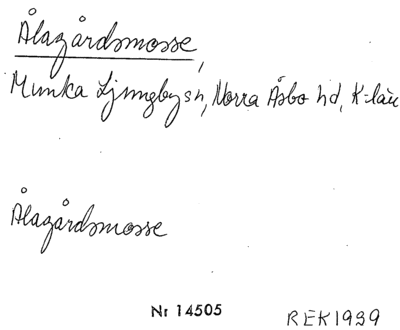 Ålagårdsmosse,
Munka Ljungby sn, Norra Åsbo hd, K-län
Ålagårdsmosse
Nr 14505
REK1939